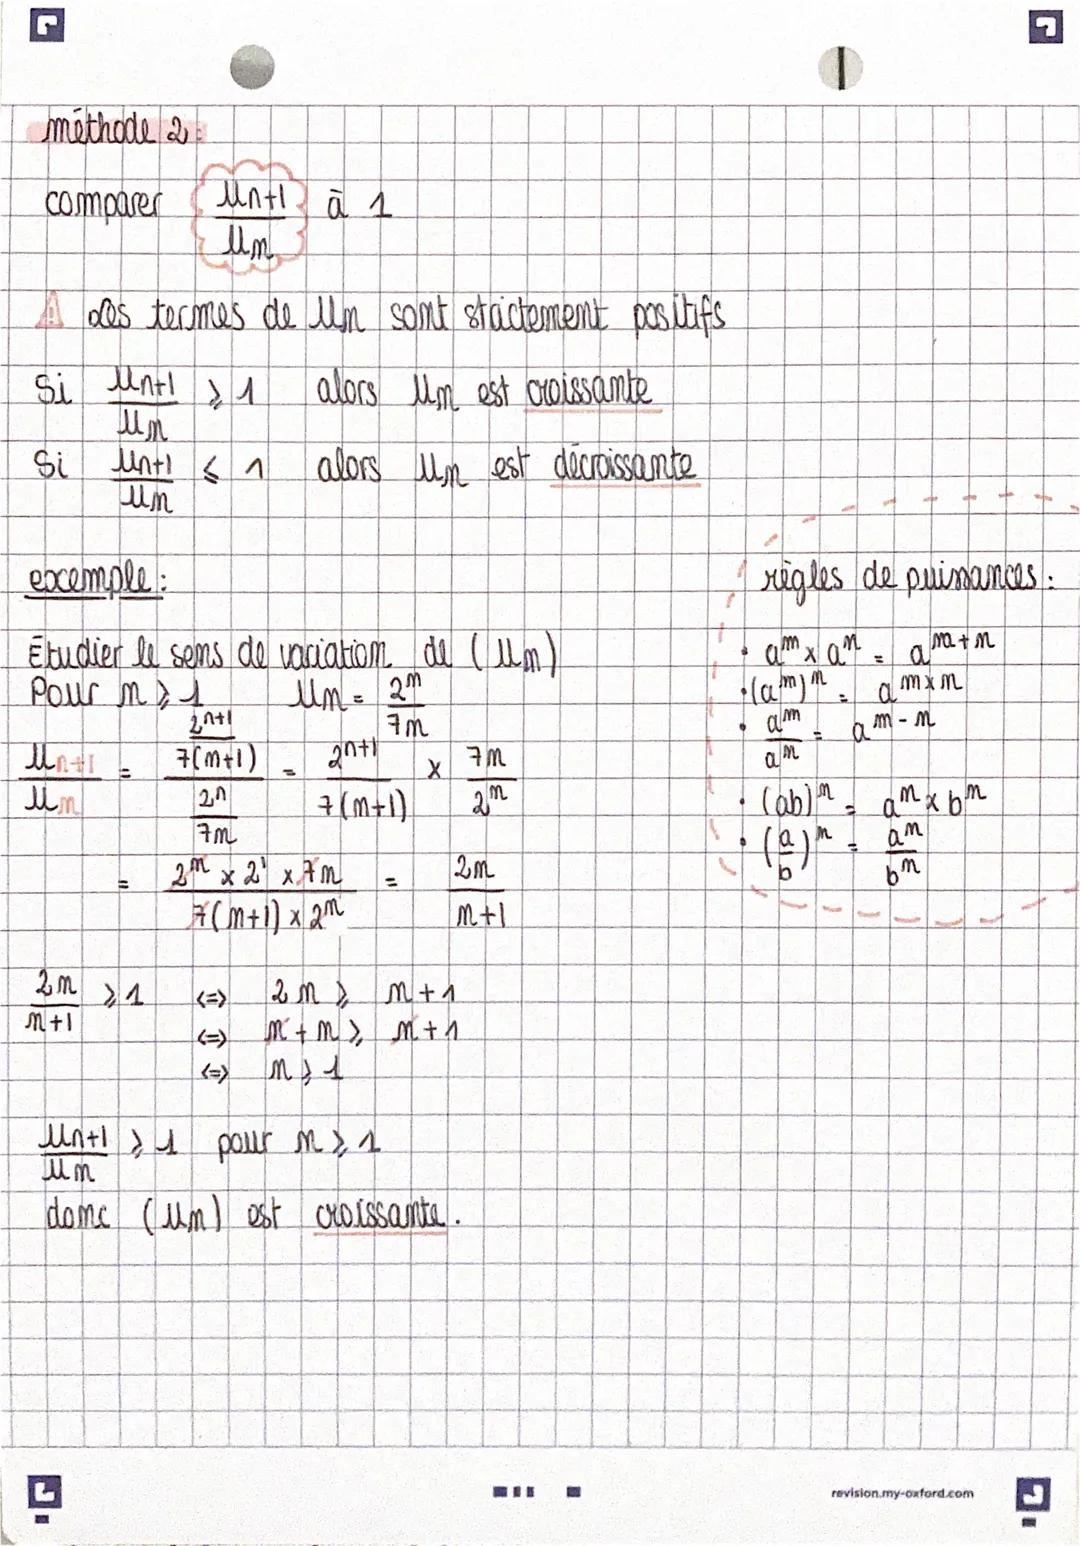 méthode 2 :
comparer Un+1/Un à 1
⚠ Les termes de Un sont strictement positifs
Si Un+1/Un ⩾ 1 alors Un est croissante
Si Un+1/Un ⩽ 1 alors Un est décroissante
exemple :
Étudier le sens de variation de (Un)
Pour n ⩾ 1 Un = 2^n/7n
Un+1/Un = (2^(n+1)/7(n+1))/(2^n/7n) = 2^(n+1)/7(n+1) × 7n/2^n
= (2^n × 2^1 × 7n)/(7(n+1) × 2^n) = 2n/n+1
2n/n+1 ⩾ 1 <=> 2n ⩾ n+1
<=> n+n ⩾ n+1
<=> n ⩾ 1
Un+1/Un ⩾ 1 pour n ⩾ 1
donc (Un) est croissante.
règles de puissances :
• a^m × a^n = a^(m+n)
• (a^m)^n = a^(m×n)
• a^m/a^n = a^(m-n)
• (ab)^n = a^n × b^n
• (a/b)^n = a^n/b^n
revision.my-oxford.com